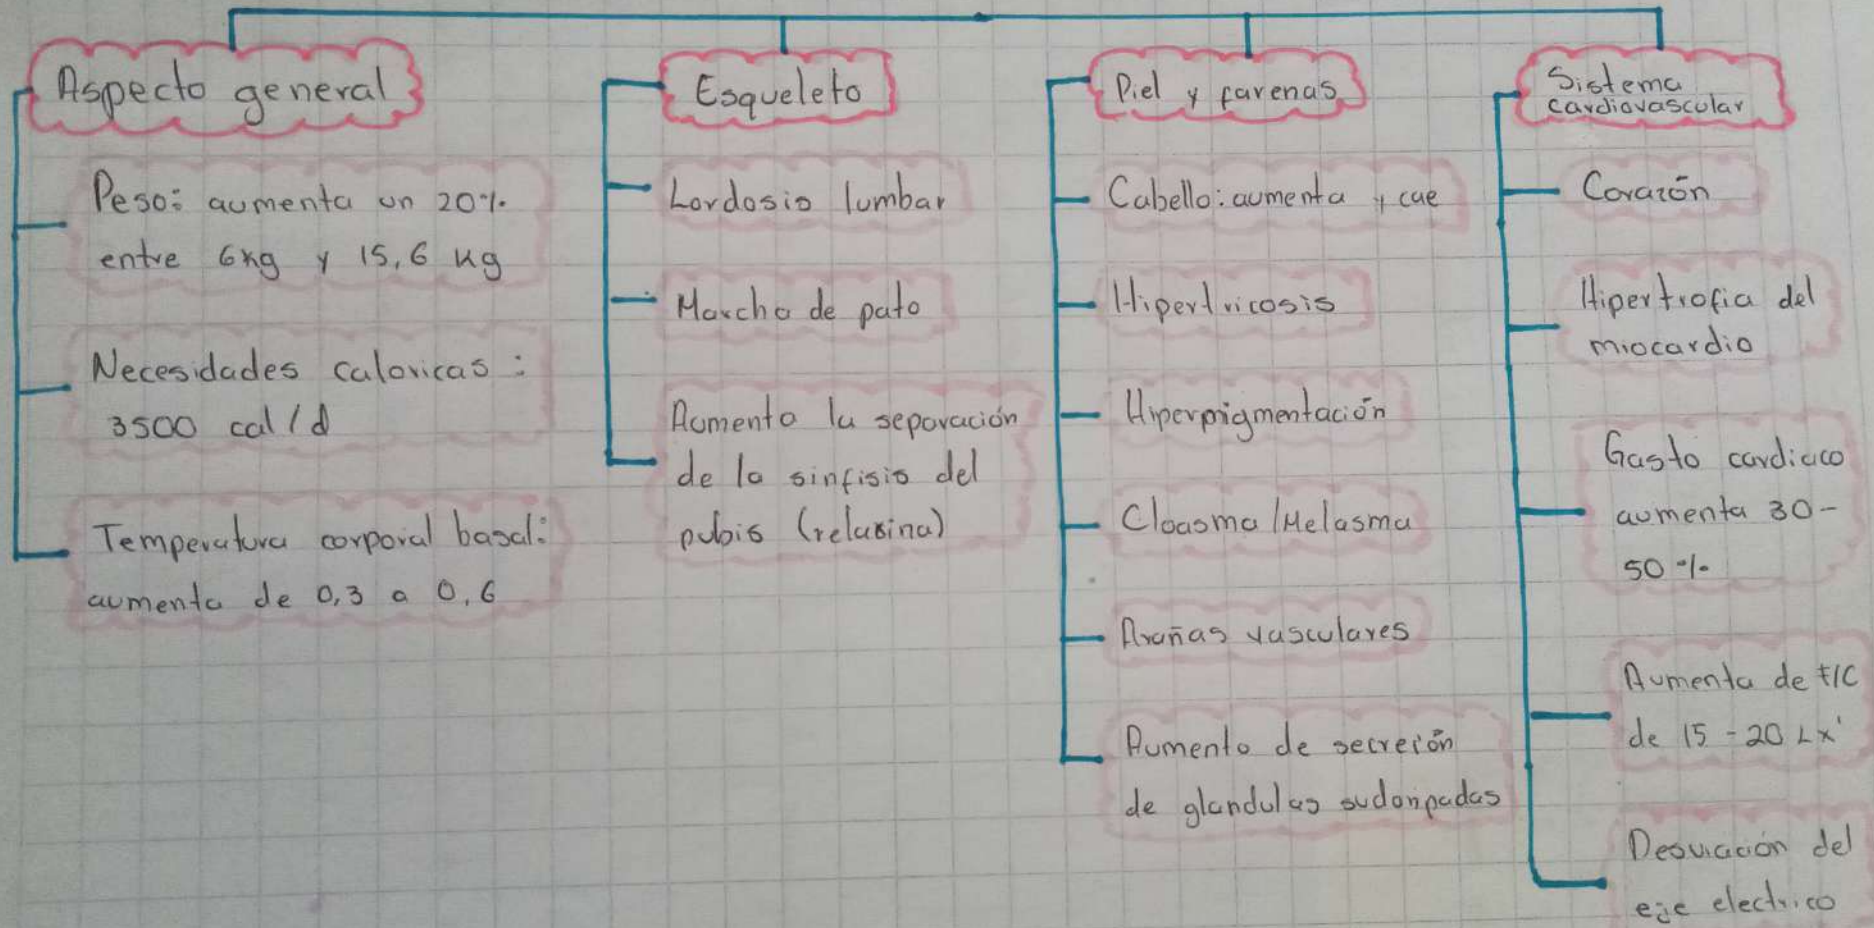 Aspecto general
Peso: aumenta un 20%
entre 6kg y 15,6 kg
Necesidades caloricas:
3500 cal/d
Temperatura corporal basal:
aumenta de 0,3 a 0,6
Esqueleto
Lordosis lumbar
Marcha de pato
Aumento la separación
de la sinfisis del
pubis (relaxina)
Piel y farenas
Cabello: aumenta y cae
Hipertricosis
Hiperpigmentación
Cloasma/Melasma
Arañas vasculares
Aumento de secreión
de glandulas sudoripadas
Sistema
cardiovascular
Corazón
Hipertrofia del
miocardio
Gasto cardiaco
aumenta 30-
50%
Aumenta de F/C
de 15-20 Lx'
Desviación del
eje electrico